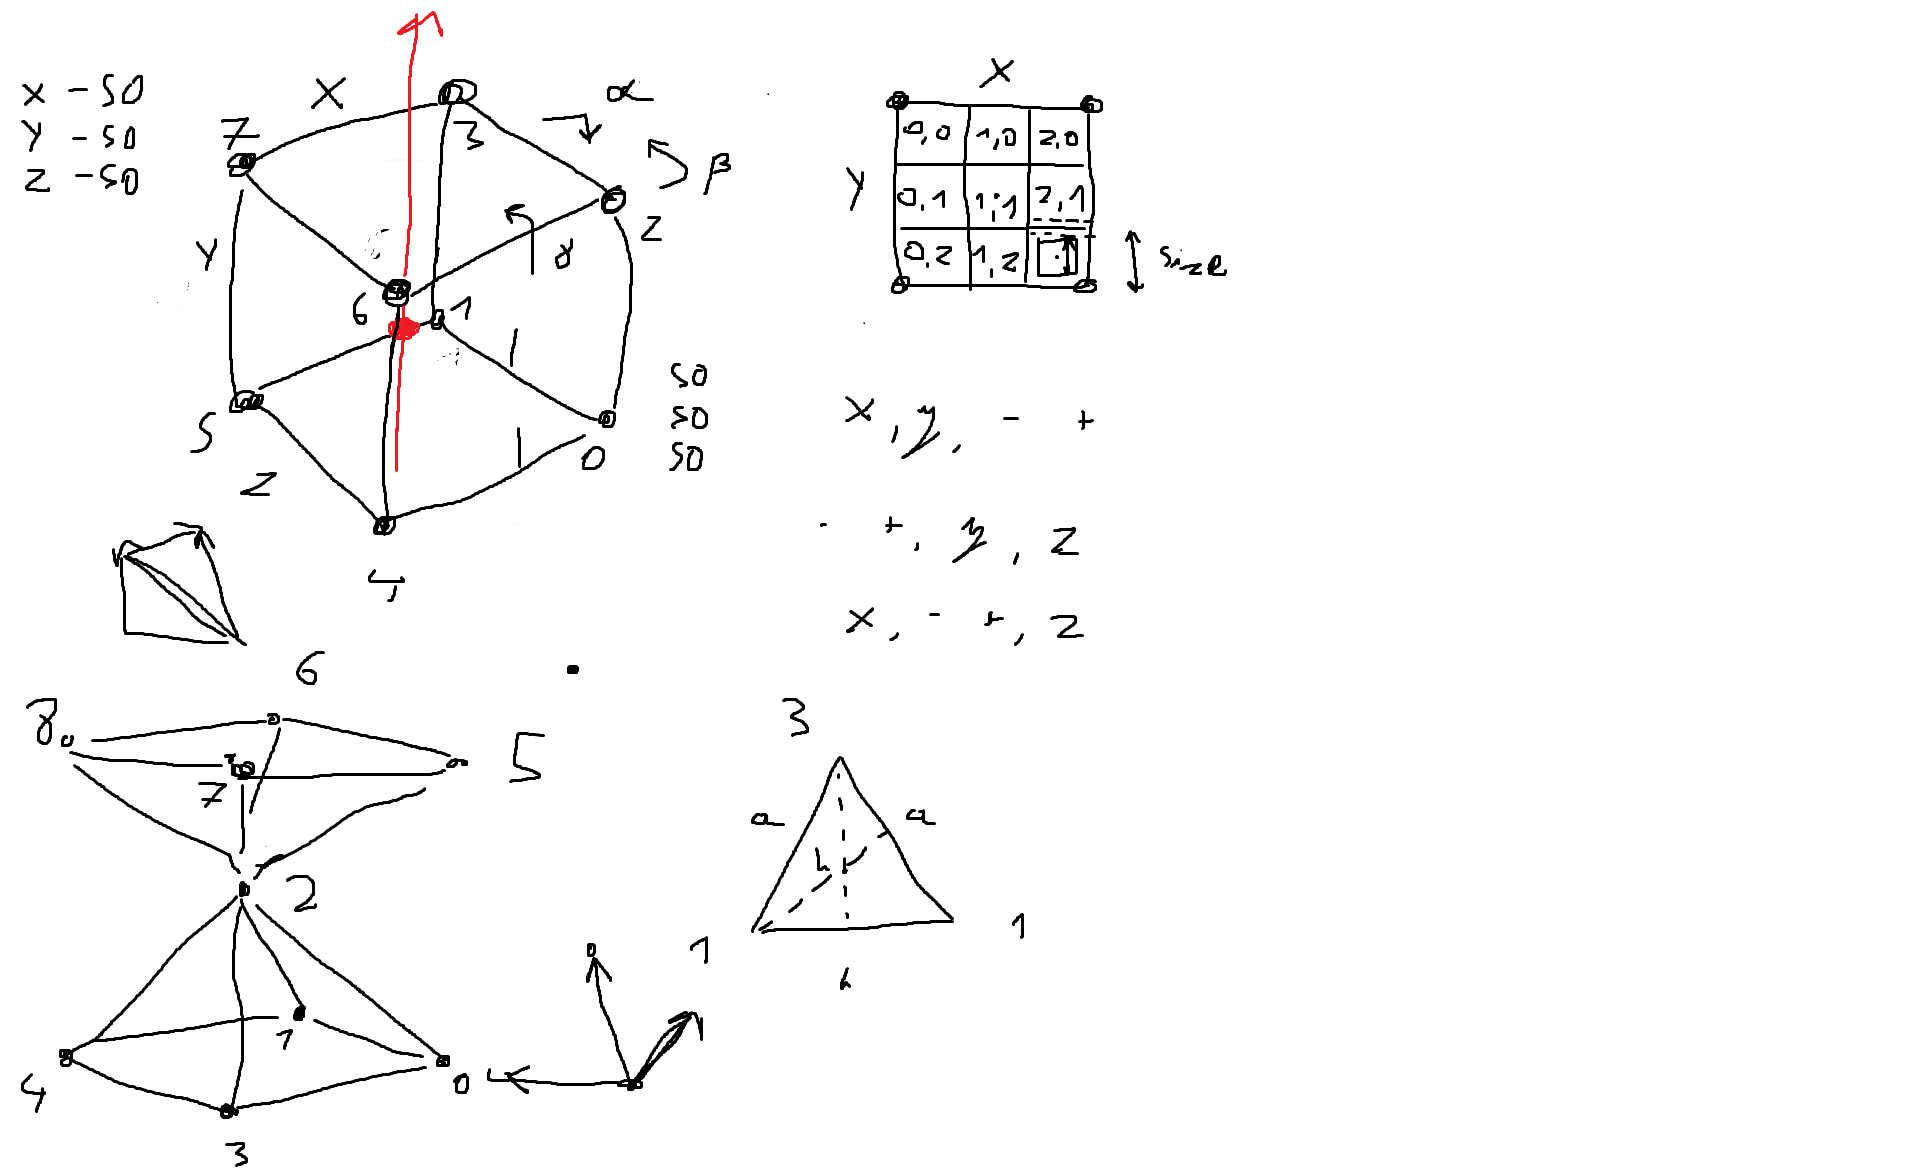 x - 50
y - 50
z - 50
X
α
7
3
β
Y
z
γ
6
1
5
0
50
50
50
z
4
X
0,0 1,0 2,0
Y
0,1 1,1 2,1
0,2 1,2
size
x, y, - +
- +, y, z
x, - +, z
6
8
5
7
2
4
1
0
3
3
a a
h
1 1